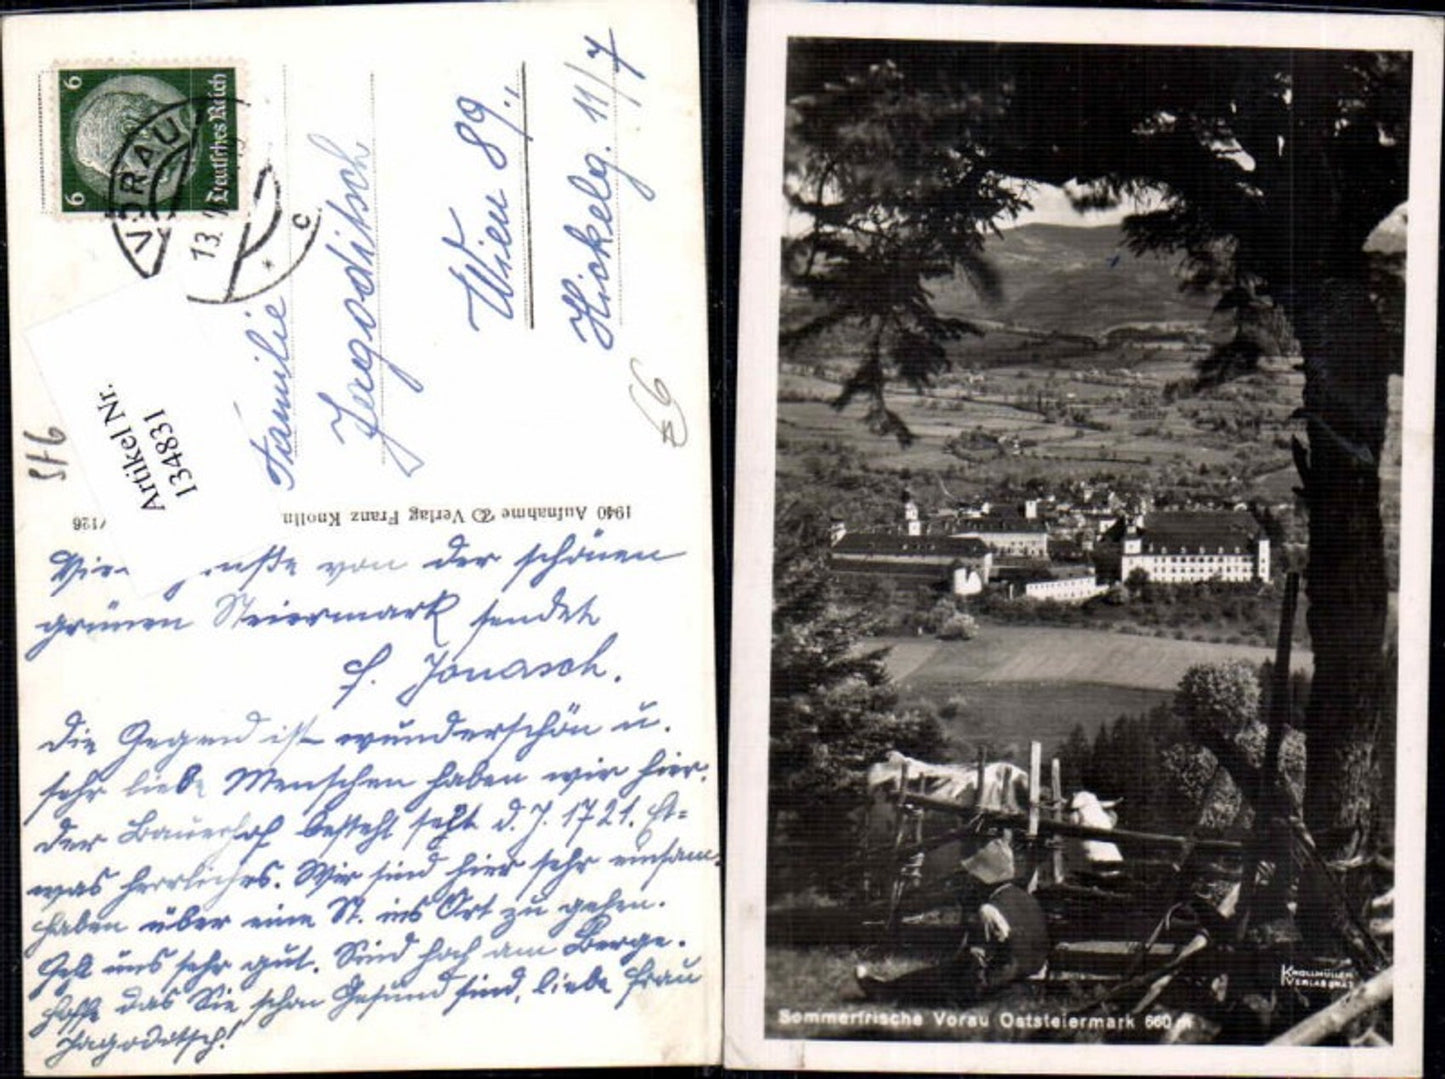 6 6
Deutsches Reich
VORAU
13.
c
Artikel Nr.
134831
Familie
Jagoditsch
Wien 89.,
Hickelg. 11/7
1940 Aufnahme & Verlag Franz Knolln
126
von der schönen
grünen Steiermark sendet
F. Jonasch.
Die Gegend ist wunderschön u.
sehr liebe Menschen haben wir hier.
Der Bauernhof besteht seit d. J. 1721. Et=
was herrliches. Wir sind hier sehr einsam,
haben über eine St. ins Ort zu gehen.
Geht uns sehr gut. Sind hoch am Berge.
Hoffe das Sie schon Gesund sind, liebe Frau
Jagoditsch!
KNOLLMÜLLER
VERLAG GRAZ
Sommerfrische Vorau Oststeiermark 660 m